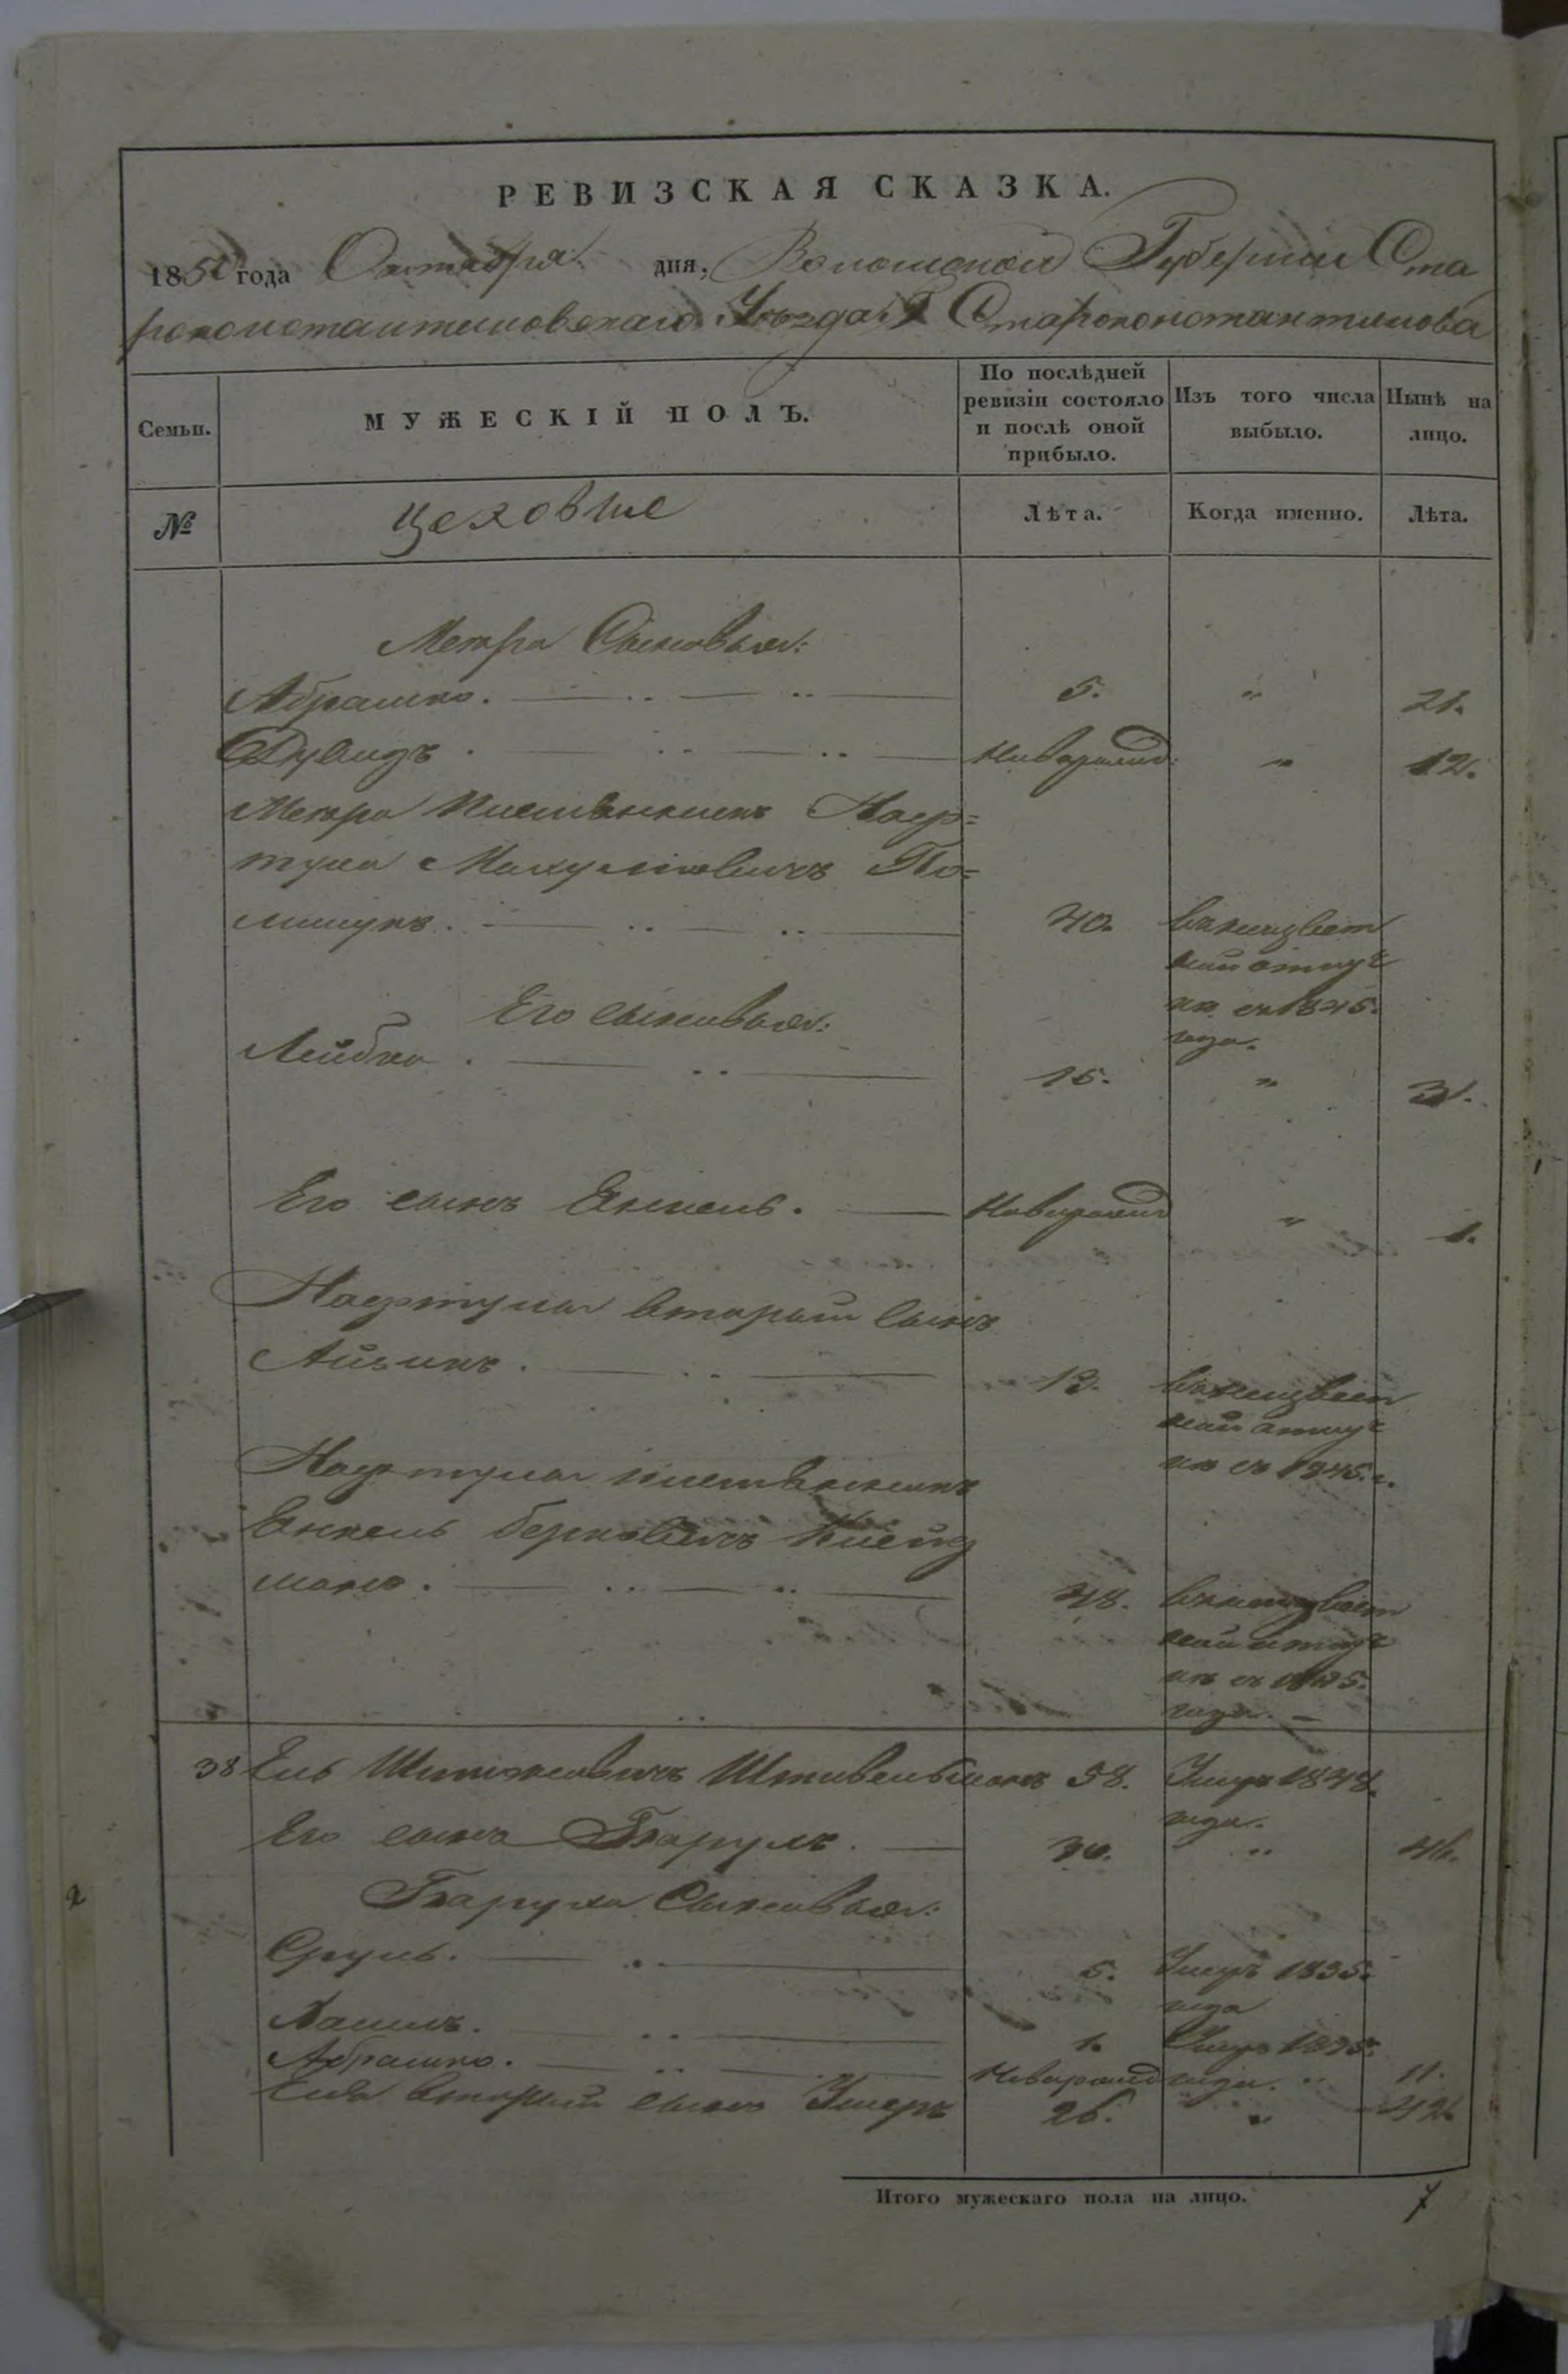 РЕВИЗСКАЯ СКАЗКА.
1850 года Октября дня, Волынской Губернии Ста
роконстантиновскаго Уѣзда Г Староконстантинова
Семьи. МУЖЕСКІЙ ПОЛЪ. По послѣдней ревизіи состояло и послѣ оной прибыло. Изъ того числа выбыло. Нынѣ на лицо.
№ цеховые Лѣта. Когда именно. Лѣта.
Сыновья:
Абрашко. 5. " 21.
Дувидъ. Новорожд: " 12.
Племянникъ Наф=
тула
40. въ неизвѣст
ной отлуч
кѣ съ 1845.
года.
Его сыновья:
Лейбко. 15. " 31.
Его сынъ Янкель. Новорожд " 1.
Нафтулы вторый сынъ
Айзикъ. 13. въ неизвѣст
ной отлуч
кѣ съ 1845. г.
Нафтулы племянникъ
Янкель Берковичъ
манъ. 48. въ неизвѣст
ной отлуч
кѣ съ
года.
38 Ель Штивельманъ 58. Умеръ 1848.
года.
Его сынъ Барухъ. 30. " 46.
Баруха Сыновья:
Сруль. 5. Умеръ 1835.
года
Хаимъ. 1. Умеръ 1835.
Абрашко. Новорожд года. " 11.
Еля вторый сынъ 26. " 42.
Итого мужескаго пола на лицо. 7
2